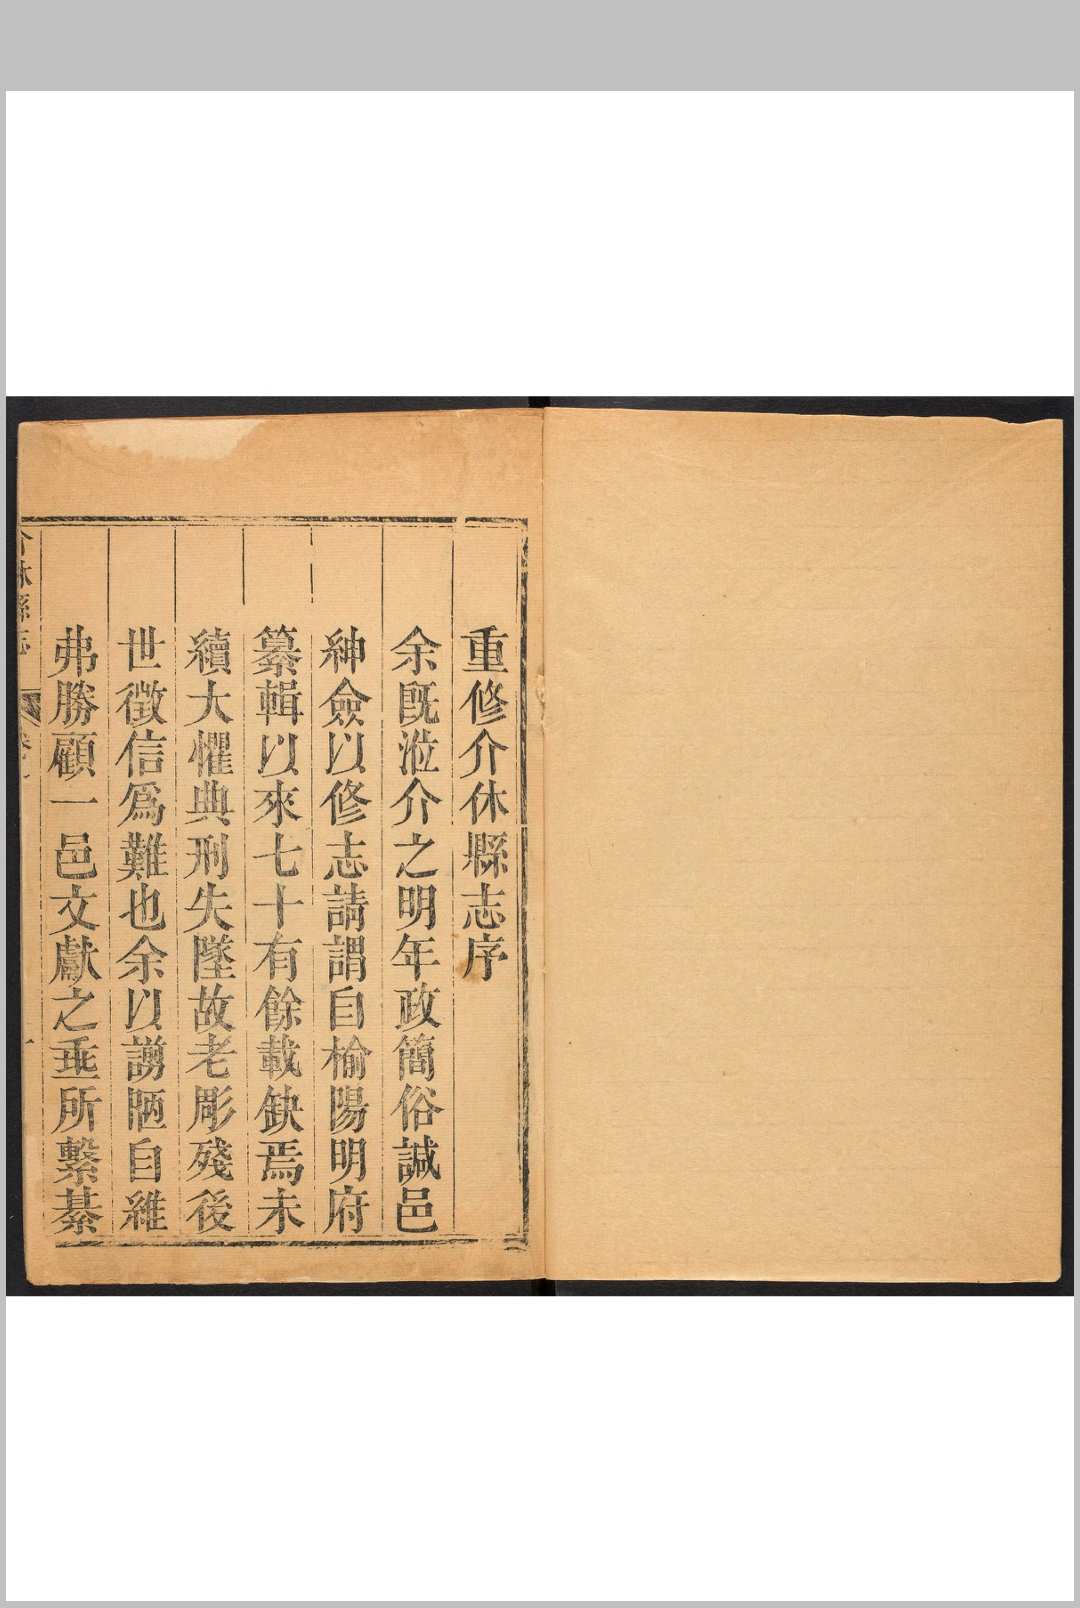 重修介休縣志序
余既涖介之明年政簡俗諴邑
紳僉以修志請謂自榆陽明府
纂輯以來七十有餘載缺焉未
續大懼典刑失墜故老彫殘後
世徵信爲難也余以謭陋自維
弗勝顧一邑文獻之垂所繫綦
介休縣志